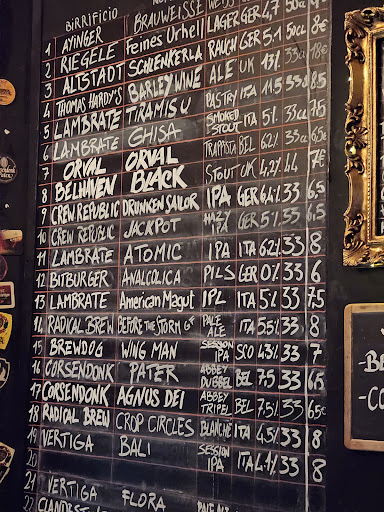 BIRRIFICIO
1 AYINGER BRAUWEISSE WEISS GER 50cl
2 RIEGELE Feines Urhell LAGER GER 4,7 50cl
3 ALTSTADT SCHLENKERLA RAUCH GER 5.1 50cl
4 THOMAS HARDY'S BARLEY WINE ALE UK 13% 33cl 18€
5 LAMBRATE TIRAMISU PASTRY ITA 11.5 33cl
6 LAMBRATE GHISA SMOKED STOUT ITA 5% 33cl 7.5
7 ORVAL ORVAL TRAPPISTA BEL 6.2% 33cl 6.5€
8 BELHAVEN BLACK STOUT UK 4,2% 44 7€
9 CREW REPUBLIC DRUNKEN SAILOR IPA GER 6,4% 33 6,5
10 CREW REPUBLIC JACKPOT HAZY IPA GER 5% 33 6,5
11 LAMBRATE ATOMIC IPA ITA 6.2% 33 8
12 BITBURGER ANALCOLICA PILS GER 0% 33 6
13 LAMBRATE American Magut IPL ITA 5% 33 7.5
14 RADICAL BREW BEFORE THE STORM PALE ALE ITA 5.5% 33 8
15 BREWDOG WING MAN SESSION IPA SCO 4.3% 33 7
16 CORSENDONK PATER ABBEY DUBBEL BEL 7.5 33 6.5
17 CORSENDONK AGNUS DEI ABBEY TRIPEL BEL 7.5% 33 6.5€
18 RADICAL BREW CROP CIRCLES BLANCHE ITA 4,5% 33 8
19 VERTIGA BALI SESSION IPA ITA 4.1% 33 8
20
21 VERTIGA FLORA